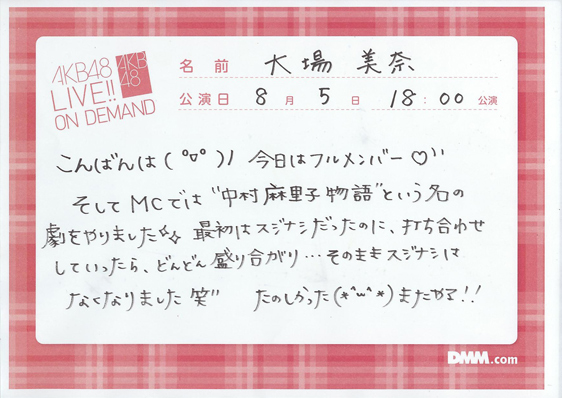 AKB48
LIVE!!
ON DEMAND
AKB
48
名前 大場 美奈
公演日 8月 5日 18:00 公演
こんばんは( °▽° )ノ 今日はフルメンバー♡''
そしてMCでは"中村麻里子物語"という名の
劇をやりました☆☆ 最初はスジナシだったのに、打ち合わせ
していったら、どんどん盛り合がり…そのままスジナシは
なくなりました 笑" たのしかった(*^ω^*)またやる!!
DMM.com